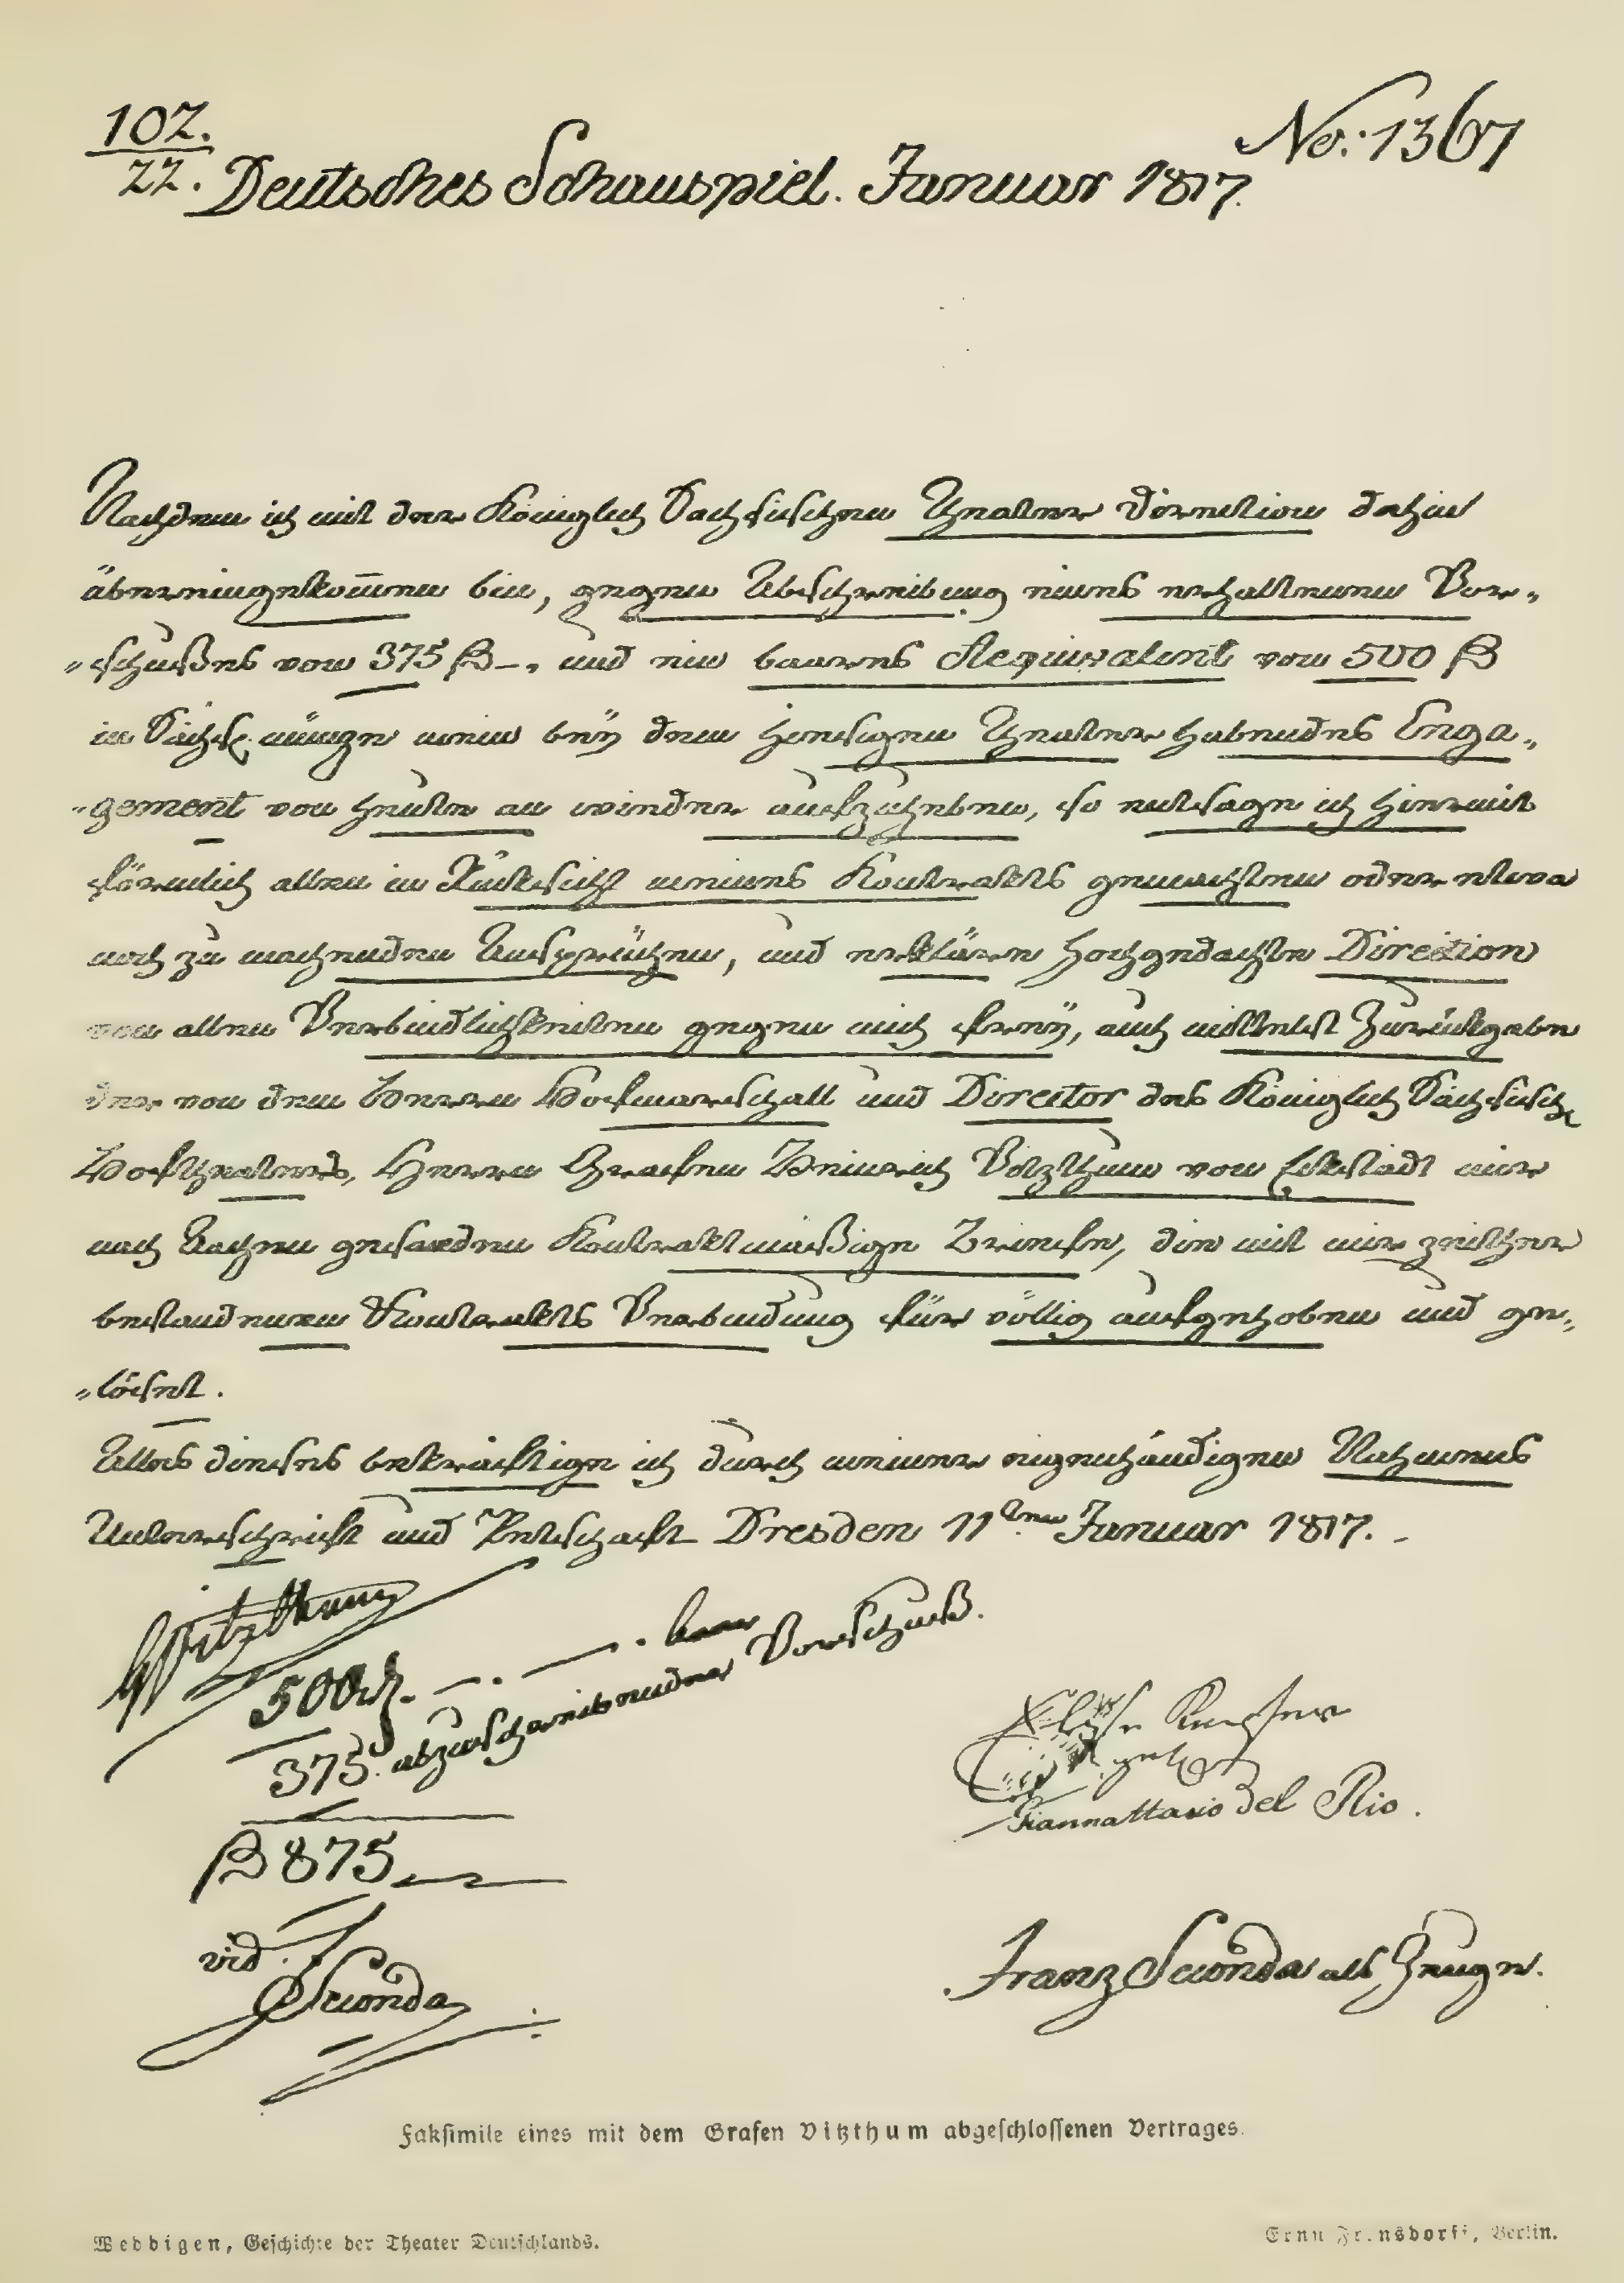 107.
22.
No: 1367
Deutsches Schauspiel. Januar 1817.
Nachdem ich mit der Königlich Sächsischen Theater Direction dahin
übereingekommen bin, gegen Abschreibung eines erhaltenen Vor-
„schußes von 375 ₰ –, und ein baares Aequivalent von 500 ₰
in Sächs. münze mein bey dem hiesigen Theater habendes Enga„
„gement von heute an wieder aufzuheben, so entsage ich hiermit
förmlich allen in Rücksicht meines Kontrakts gemachten oder etwa
noch zu machenden Ansprüchen, und erkläre hochgedachte Direction
von allen Verbindlichkeiten gegen mich frey, auch mittelst Zurückgabe
der von dem Herrn Hofmarschall und Director des Königlich Sächsisch
Hoftheaters, Herrn Grafen Heinrich Vitzthum von Eckstädt mir
nach Aachen gesandten Kontraktmäßigen Briefe, die mit mir zeither
bestandenen Kontrakts Verbindung für völlig aufgehoben und ge„
„löset.
Alles dieses bekräftige ich durch meiner eigenhändigen Nahmens
Unterschrift und Petschaft Dresden 11ten Januar 1817. –
HVitzthum
500 rh. – . – . baar
375. abzuschreibender Vorschuß.
₰ 875
vid.
FSeconda
geb
Giannattasio del Rio.
Franz Seconda als Zeuge.
Faksimile eines mit dem Grafen Vitzthum abgeschlossenen Vertrages.
Weddigen, Geschichte der Theater Deutschlands.
Ernst Frensdorff, Berlin.